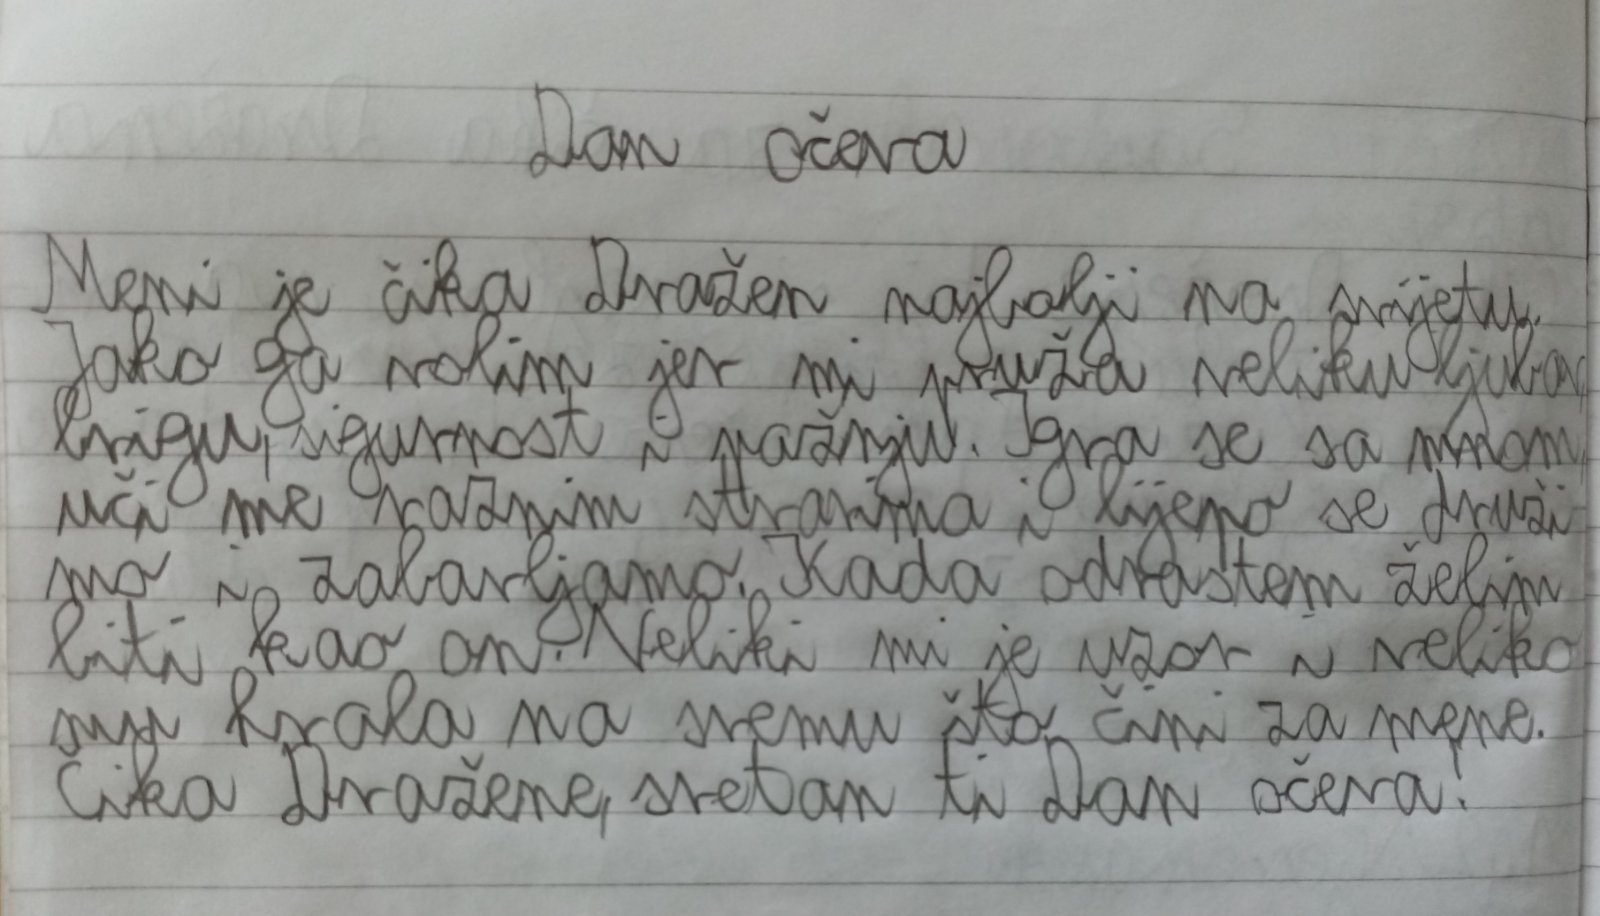 Dan očeva
Meni je čika Dražen najbolji na svijetu.
Jako ga volim jer mi pruža veliku ljubav,
brigu, sigurnost i pažnju. Igra se sa mnom,
uči me raznim stvarima i lijepo se druži
mo i zabavljamo. Kada odrastem želim
biti kao on. Veliki mi je uzor i veliko
mu hvala na svemu što čini za mene.
Čika Dražene, sretan ti Dan očeva!